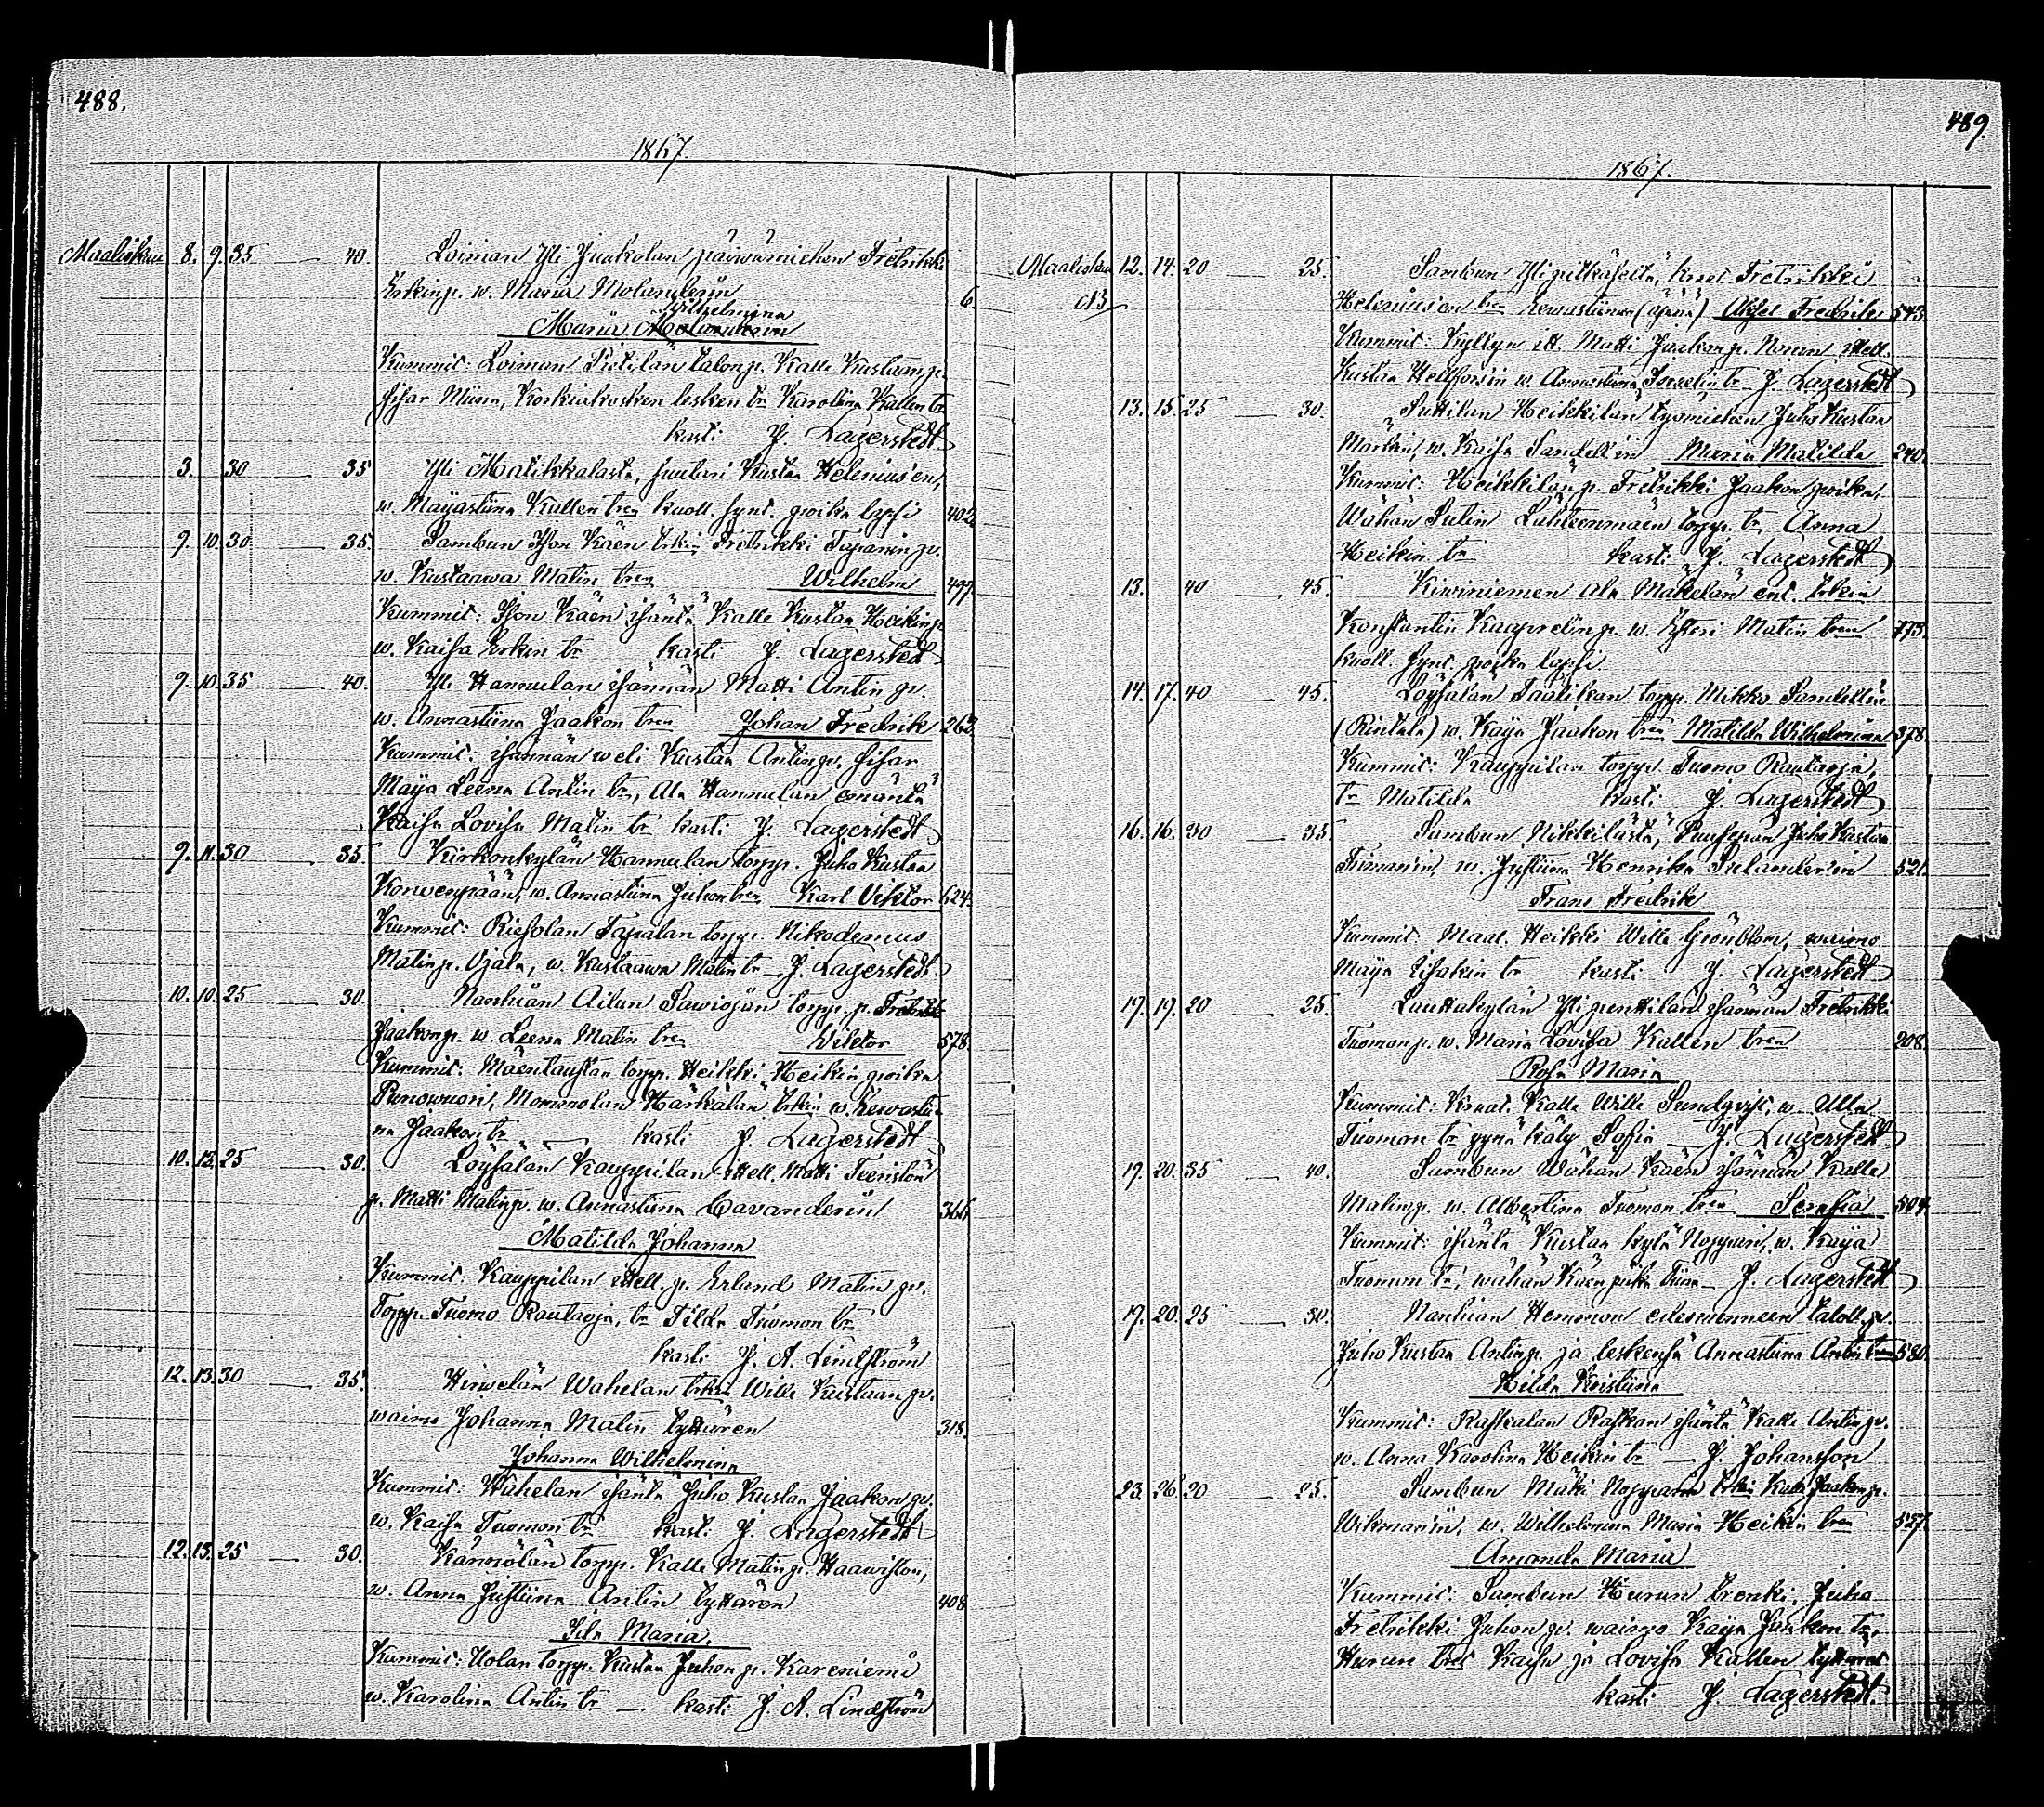 488.
1867.
Maaliskuu 8. 9. 35 — 40. Loiman Yli Juakolan päiwämiehen Fredrikki
Erkinp. w. Maria Molanderin 6.
Wilhelmina
Maria
Kummit: Loiman Pietilän talonp. Kalle Kustaanp.
sisar Miina, Korkiakosken lesken tr Karolina Kallen tr
kasti J. Lagerstedt
3. 30 — 35 Yli Matikkalasta, suutari Kustaa Helenius'en,
w. Majastiina Kallen tren kuoll. synt. poika lapsi 402
9. 10. 30 — 35. Sambun Ison Käen trkin Fredrikki Tapanin p.
w. Kustaawa Matin tren Wilhelm 497.
Kummit: Ison Käen isäntä Kalle Kustaa Heikinp.
w. Kaisa Erkin tr kasti J. Lagerstedt
9. 10. 35 — 40. Yli Hannulan isännän Matti Antin p.
w. Annastiina Jaakon tren Johan Fredrik 262.
Kummit: isännän weli Kustaa Antinp. sisar
Maija Leena Antin tr, Ala Hannulan emäntä
Kaisa Lovisa Matin tr kasti J. Lagerstedt
9. 11. 30 — 35. Kirkonkylän Hannulan torpp. Juho Kustaa
Korwenpään, w. Annastiina Juhon tren Karl Viktor 624.
Kummit: Riesolan Tapalan torpp. Nikodemus
Matinp. Ojala, w. Kustaawa Matin tr J. Lagerstedt
10. 10. 25 — 30. Nanhian Ailun Sawiojan torpp. p. Fredrikki
Jaakonp. w. Leena Matin tren Viktor 578.
Kummit: Mäentaustan torpp. Heikki Heikin poika
Punowuori, Mommolan Härkälän trkin w. Eewastii-
na Jaakon tr — kasti J. Lagerstedt
10. 12. 25 — 30. Löysälän Kauppilan itsell. Matti Teeriston
p. Matti Matinp. w. Annastiina Cavanderin 366
Matilda Johanna
Kummit: Kauppilan itsell. p. Erland Matin p.
Torpp. Tuomo Rautaoja, tr Tilda Tuomon tr
kasti J. A. Lindström
12. 13. 30 — 35. Hirwelän Wahelan trkin Wille Kustaan p.
waimo Johanna Matin tyttären 318.
Johanna Wilhelmina
Kummit: Wahelan isäntä Juho Kustaa Jaakon p.
w. Kaisa Tuomon tr kasti J. Lagerstedt
12. 13. 25 — 30. Kännölän torpp. Kalle Matinp. Haawiston,
w. Anna Justiina Antin tyttären 408
Ida Maria.
Kummit: Uolan torpp. Kustaa Juhon p. Kareniemi
w. Karolina Antin tr — kasti J. A. Lindström
489.
1867.
Maaliskuu 12. 14. 20 — 25. Sambun Ylipitkäseltä, Fredrikki
Helenius'en tren Eewastiinan (äpärä) Aksel Fredrik 543.
Kummit: Kyllyn itt. Matti Jaakon p. Noren itsell.
Kustaa Hellforsin w. Annastiina tr J. Lagerstedt
13. 15. 25 — 30. Suttilan Heikkilän työmiehen Juho Kustaa
Mörkin, w. Kaisa Sandell'in Maria Matilda 240.
Kummit: Heikkilän p. Fredrikki Jaakon poika,
Wähän Sulin Lähteenmäen torpp. tr Anna
Heikin tr kasti J. Lagerstedt
13. 40 — 45. Kiwiniemen Ala Mäkelän ent. trkin
Konstantin Kaaprelinp. w. Esteri Matin tren 773.
kuoll. synt. poika lapsi
14. 17. 40 — 45. Löysälän Taalikan torpp. Mikko Sandell'in
(Rintala) w. Kaija Jaakon tren Matilda Wilhelmina 378.
Kummit: Kauppilan torpp. Tuomo Rautaoja,
tr Matilda kasti J. Lagerstedt
16. 16. 30 — 35. Sambun Nikkilästä, Juho Kustaa
w. Justiina Henrika Sulander'in 521.
Frans Fredrik
Kummit: Maal. Heikki Wille Grönblom, waimo
Maija Eisakin tr kasti J. Lagerstedt
17. 19. 20 — 25. Lauttakylän Ylipenttilän isännän Fredrikki
Tuomonp. w. Maria Lovisa Kallen tren 208.
Rosa Maria
Kummit: Kalle Wille Sundqvist, w. Ulla
Tuomon tr ja käly Sofia — J. Lagerstedt
19. 20. 35 — 40. Sambun Wähän Käen isännän Kalle
Matinp. w. Albertina Tuomon tren Serafia 504.
Kummit: isäntä Kustaa Kylä Nopparin, w. Kaija
Tuomon tr, wähän Käen piika Tiina — J. Lagerstedt
19. 20. 25 — 30. Nanhian Hemmon edesmenneen taloll. p.
Juho Kustaa Antinp. ja leskensä Annastiina Antin tren 580.
Hilda Kristiina
Kummit: Raskalan Raskan isäntä Kalle Antin p.
w. Anna Karolina Heikin tr — J. Johansson
23. 26. 20 — 25. Sambun Mäki Nopparin trkin Kalle Jaakonp.
Wikman'in, w. Wilhelmina Maria Heikin tren 527.
Amanda Maria
Kummit: Sambun Hurun trenki, Juho
Fredrikki Juhon p. waimo Kaija Jaakon tr,
Hurun tret Kaisa ja Lovisa Kallen tyttäret
kasti J. Lagerstedt.